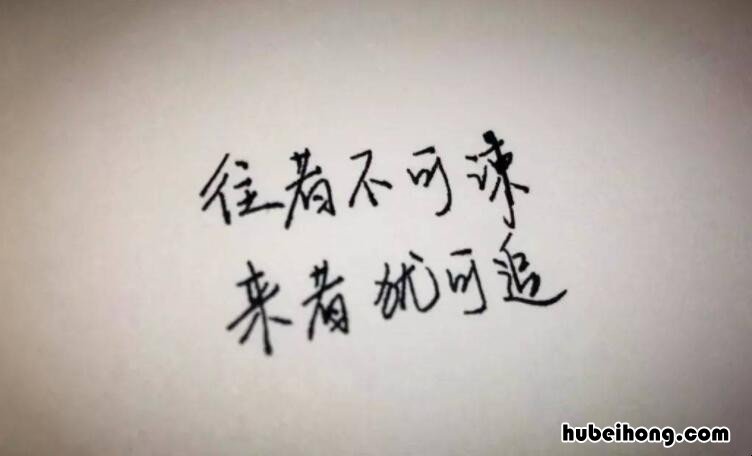 往者不可谏
来者犹可追
hubeihong.com